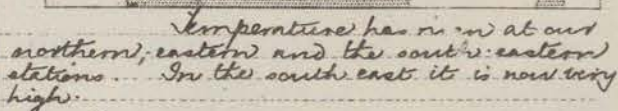 Temperature has risen at our
northern, eastern and the south-eastern
stations. In the south east it is now very
high.